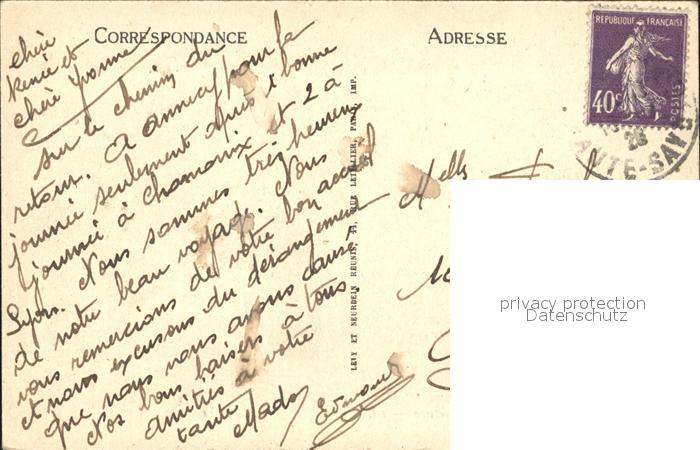 CORRESPONDANCE
ADRESSE
chère
Renée et
chère Yvonne
Sur le chemin du
retour. A annecy pour la
journée seulement après 1 bonne
journée à Chamonix et 2 à
Lyon. Nous sommes très heureux
de notre beau voyage. Nous
vous remercions de votre bon accueil
et nous excusons du dérangement
que nous vous avons causé
Nos bons baisers à tous
amitiés à votre
tante
Mado
Edmond
LEVY ET NEURDEIN REUNIS, 44, RUE LETELLIER, PARIS IMP.
REPUBLIQUE FRANÇAISE
40c
POSTES
28
HAUTE-SAV
Melles
privacy protection
Datenschutz